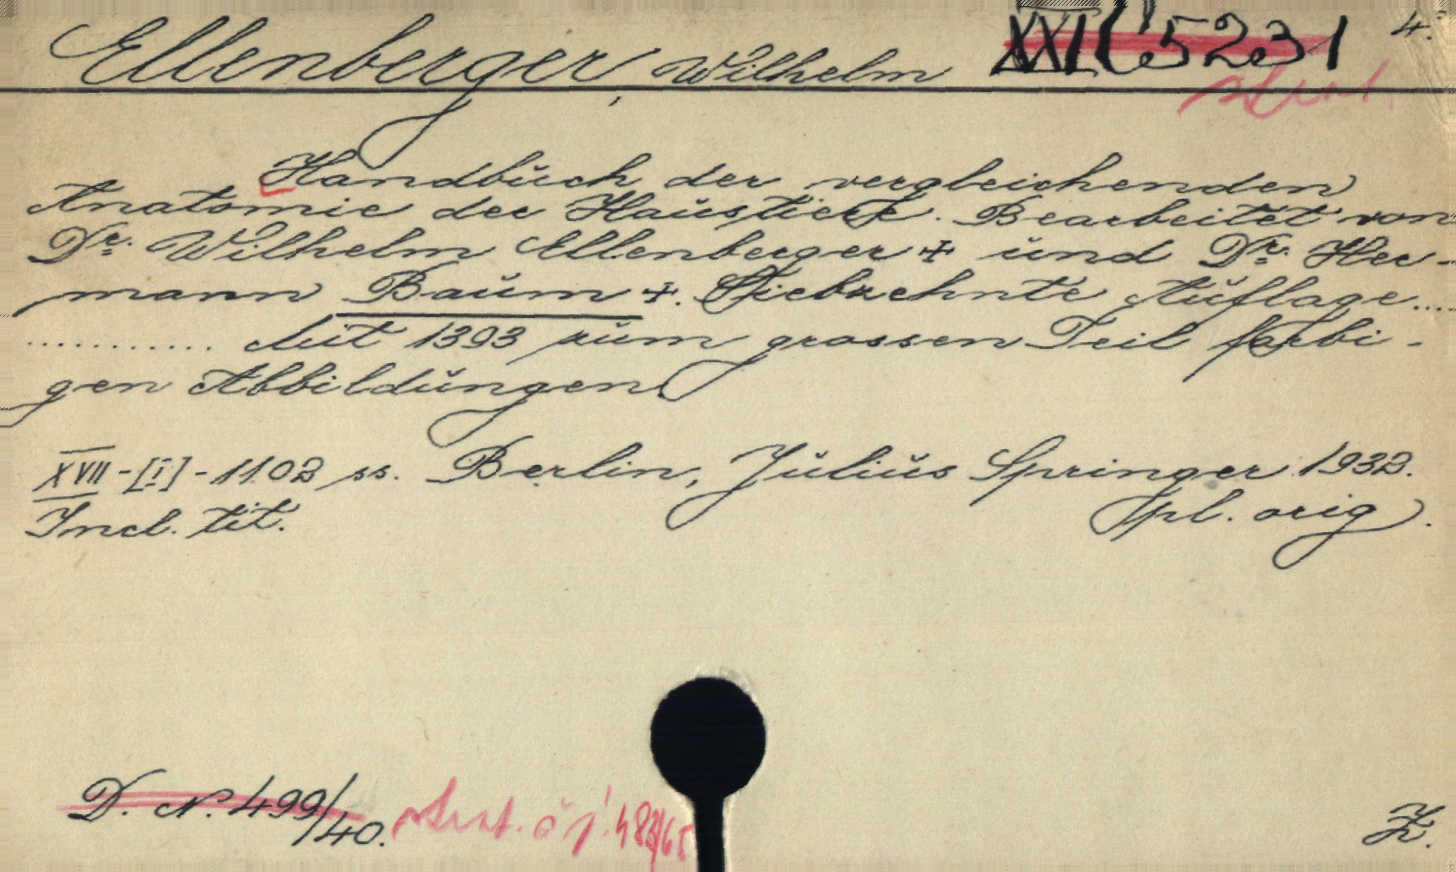 Ellenberger, Wilhelm XXII C 5231 4.°
Handbuch der vergleichenden
Anatomie der Haustiere. Bearbeitet von
Dr. Wilhelm Ellenberger † und Dr. Her-
mann Baum †. Siebzehnte Auflage....
............ Mit 1393 zum grossen Teil farbi-
gen Abbildungen.
XVII-[I]-1102 ss. Berlin, Julius Springer 1932.
Incl. tit. Spl. orig.
D. N. 499/40. 482/65
Z.